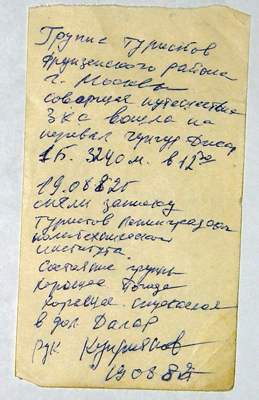 Группа туристов
Фрунзенского района
г. Москвы
совершая путешествие
3 кс вошла на
перевал
1Б. 3240 м. в 12 00
19.08 82г
сняли записку
туристов Ленинградского
политехнического
института.
Состояние группы
хорошее погода
хорошее. спускаемся
в дол Далар
рук
19 08 82